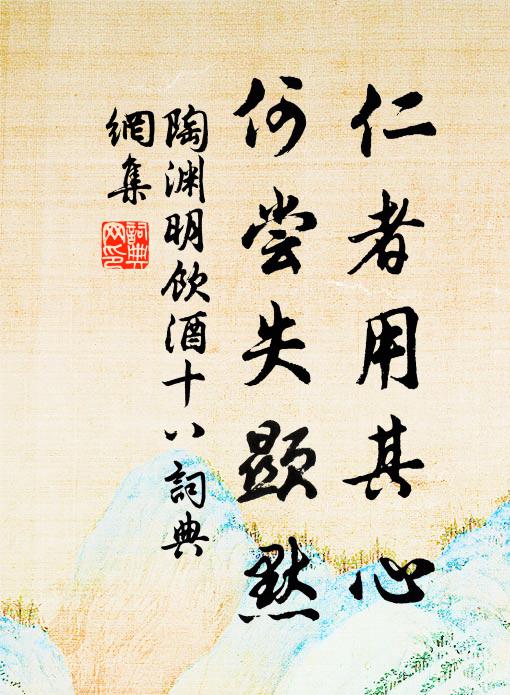 仁者用其心
何尝失顯默
陶渊明飲酒十八詞典
網集
詞典
网印